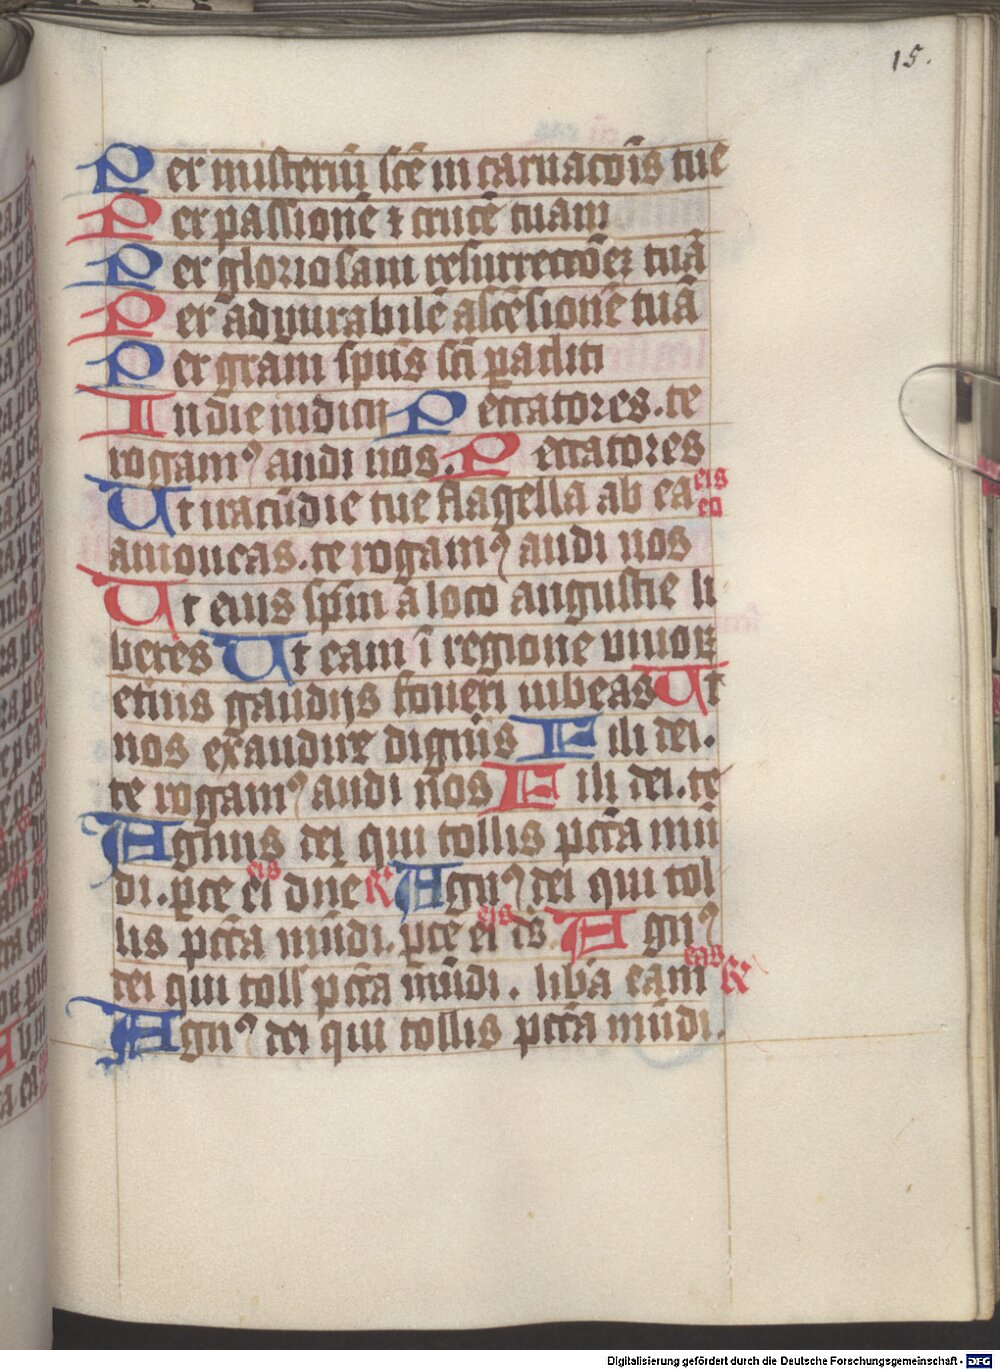 15.
Per misteriū scē in carnacōis tue
Per passionē ⁊ crucē tuam
Per gloriosam resurrectōeʒ tuā
Per admirabilē ascēsionē tuā
Per gr̄am sp̄us sc̄i ꝑacliti
In die iudicij Peccatores. te
rogamꝰ audi nos. Peccatores
Ut iracūdie tue flagella ab ea eis eo
amoueas. te rogamꝰ audi nos
Ut eius sp̄m a loco angustie li
beres Ut eam ī regione viuoꝝ
etiius gaudijs foueri iubeas Ut
nos exaudire digneris Fili dei.
te rogamꝰ audi nos Fili dei. te
Agnus dei qui tollis pctā mū
di. ꝑce ei eis dn̄e ℟ Agnꝰ dei qui tol
lis pctā mūdi. ꝑce ei eis Agnꝰ
dei qui toll pctā mūdi. lib̄a eam eas ℟
Agnꝰ dei qui tollis pctā mūdi.
Digitalisierung gefördert durch die Deutsche Forschungsgemeinschaft - DFG